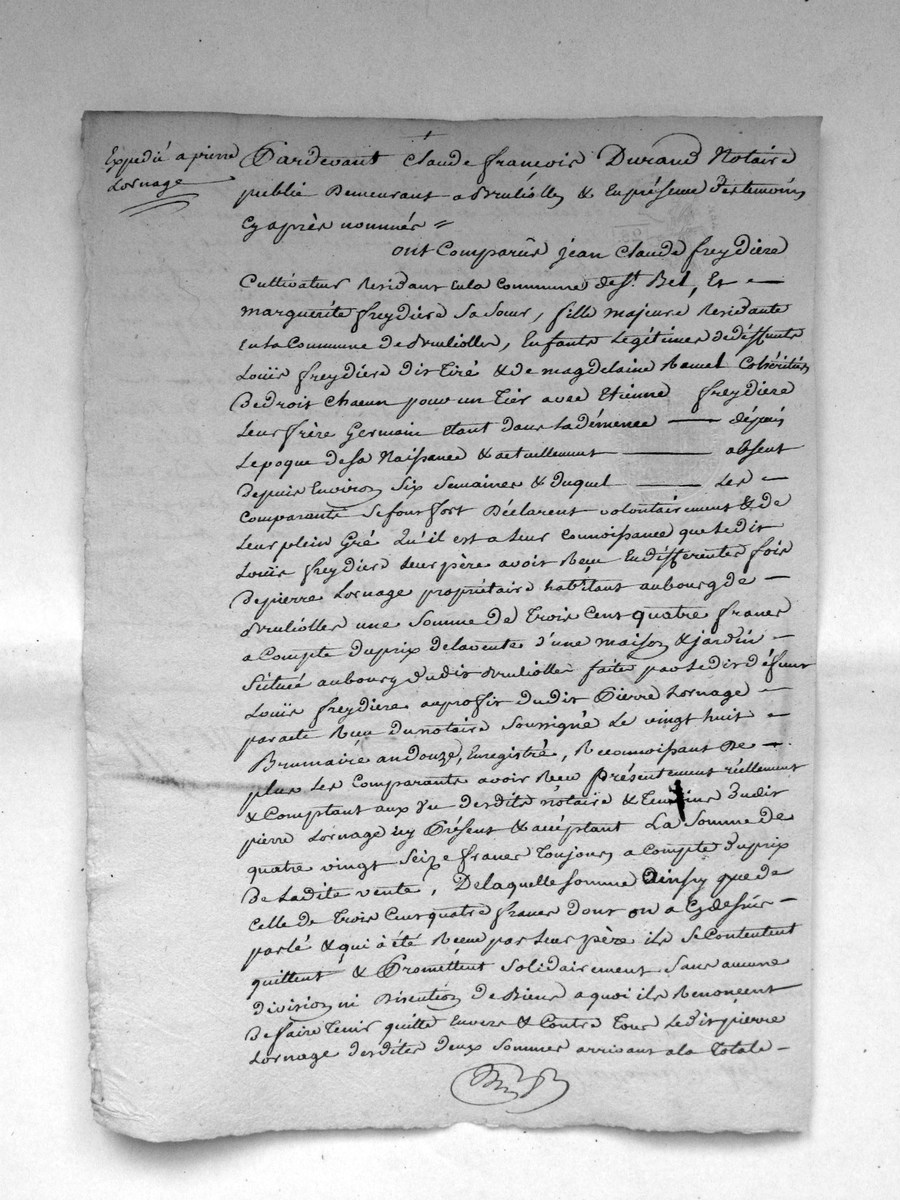 Expedié a pierre
Lornage
Pardevant Claude françois Durand Notaire
public Demeurant a Brulliolles & Enprésence Destemoins
Cyaprès nommés =
ont Comparûs jean Claude freydiere
Cultivateur Residant Enla Commune de St. Bel, Et —
marguerite freydiere Sa Sœur, fille majeure Residante
Enla Commune de Brulliolles, Enfants Légitimes de déffunts
Louis freydiere dit Tiré & de magdelaine Ramel Cohéritiers
De droit Chacun pour un Tier avec Etienne freydiere
Leur frère Germain Etant dans La démence — dépuis
Lepoque desa Naissance & actuellement — absent
Depuis Environ Six Semaines & duquel — Les —
Comparants Sefont fort Déclarent volontairement & de
Leur plein Gré Qu'il est a Leur Connoissance que Ledit
Louis freydiere Leur père avoit Recu En différentes fois
De pierre Lornage propriétaire habitant aubourg de —
Brulliolles une Somme de Trois Cent quatre francs
a Compte du prix de la vente d'une maison & jardin —
Située au bourg dudit Brulliolles faite par Ledit défunt
Louis freydiere au profit dudit Pierre Lornage —
par acte Recu du notaire Soussigné Le vingt huit —
Brumaire an Douze, Enregistré, Reconnoissant De —
plus Les Comparants avoir Recu Présentement réellement
& Comptant aux vu desdits notaire & Temoins Dudit
pierre Lornage icy Présent & acceptant La Somme de
quatre vingt Seize francs Toujours a Compte du prix
De Ladite vente, De laquelle Somme Ainsy que de
Celle de Trois Cent quatre francs dont on a Cy dessus —
parlé & qui a été Recue par Leur père ils Se Contentent
quittent & Promettent Solidairement Sans aucune
division ni Discution de Biens a quoi ils Renoncent
De faire Tenir quitte Envers & Contre Tous Ledit pierre
Lornage desdites deux Sommes arrivant a la Totale —